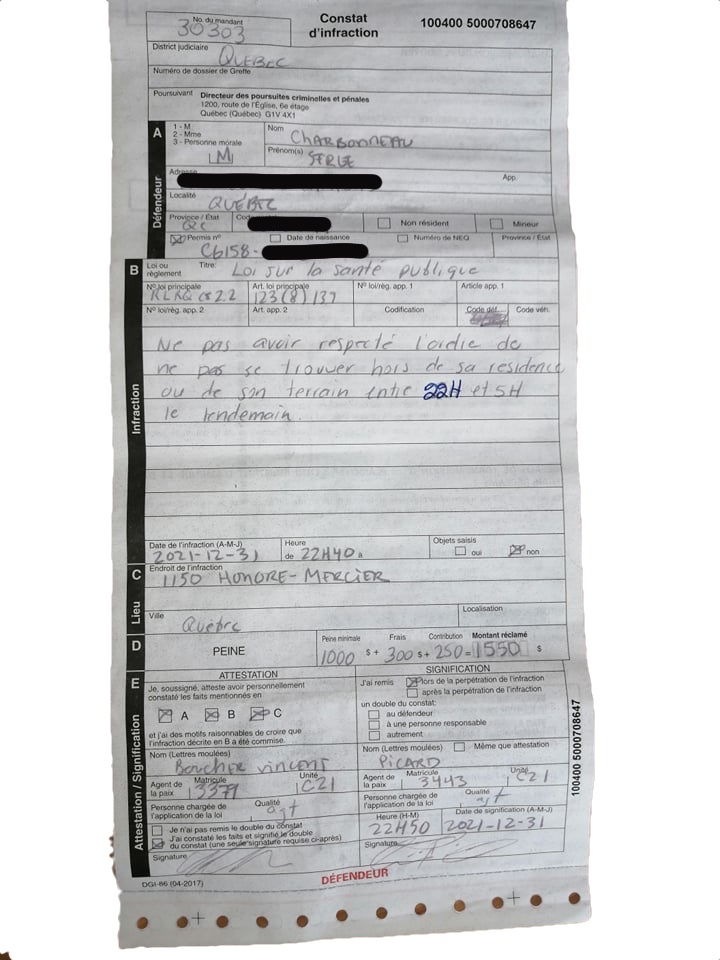 No. du mandant
30303
Constat
d'infraction
100400 5000708647
District judiciaire
QUEBEC
Numéro de dossier de Greffe
Poursuivant Directeur des poursuites criminelles et pénales
1200, route de l'Église, 6e étage
Québec (Québec) G1V 4X1
A
Défendeur
1 - M
2 - Mme
3 - Personne morale
M
Nom
CHARBONNEAU
Prénom(s)
Adresse
App.
Localité
QUÉBEC
Province / État
QC
Code
Non résident
Mineur
Permis nº
C6158-
Date de naissance
Numéro de NEQ
Province / État
B
Infraction
Loi ou
règlement
Titre:
Loi sur la santé publique
Nº loi principale
RLRQ cs 2.2
Art. loi principale
123(8) 139
Nº loi/règ. app. 1
Article app. 1
Nº loi/règ. app. 2
Art. app. 2
Codification
Code déf.
Code vén.
Ne pas avoir respecté l'ordre de
ne pas se trouver hors de sa residence
ou de son terrain entre 22H et 5H
le lendemain.
Date de l'infraction (A-M-J)
2021-12-31
Heure
de 22H40 à
Objets saisis
oui
non
C
Lieu
Endroit de l'infraction
1150 HONORE-MERCIER
Ville
Québec
Localisation
D
PEINE
Peine minimale
Frais
Contribution
Montant réclamé
1000 $ + 300 $ + 250 = 1550 $
E
Attestation / Signification
ATTESTATION
Je, soussigné, atteste avoir personnellement
constaté les faits mentionnés en
A B C
et j'ai des motifs raisonnables de croire que
l'infraction décrite en B a été commise.
Nom (Lettres moulées)
BOUCHER VINCENT
Agent de
la paix
Matricule
3371
Unité
C21
Personne chargée de
l'application de la loi
Qualité
agt
Je n'ai pas remis le double du constat
J'ai constaté les faits et signifié le double
du constat (une seule signature requise ci-après)
Signature
SIGNIFICATION
J'ai remis
lors de la perpétration de l'infraction
après la perpétration de l'infraction
un double du constat:
au défendeur
à une personne responsable
autrement
Nom (Lettres moulées)
Même que attestation
PICARD
Agent de
la paix
Matricule
3443
Unité
C21
Personne chargée de
l'application de la loi
Qualité
agt
Heure (H-M)
22H50
Date de signification (A-M-J)
2021-12-31
Signature
100400 5000708647
DGI-86 (04-2017)
DÉFENDEUR